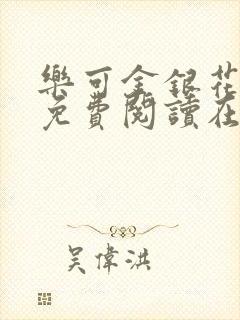 樂可金銀花
免費閱讀在
吳偉洪